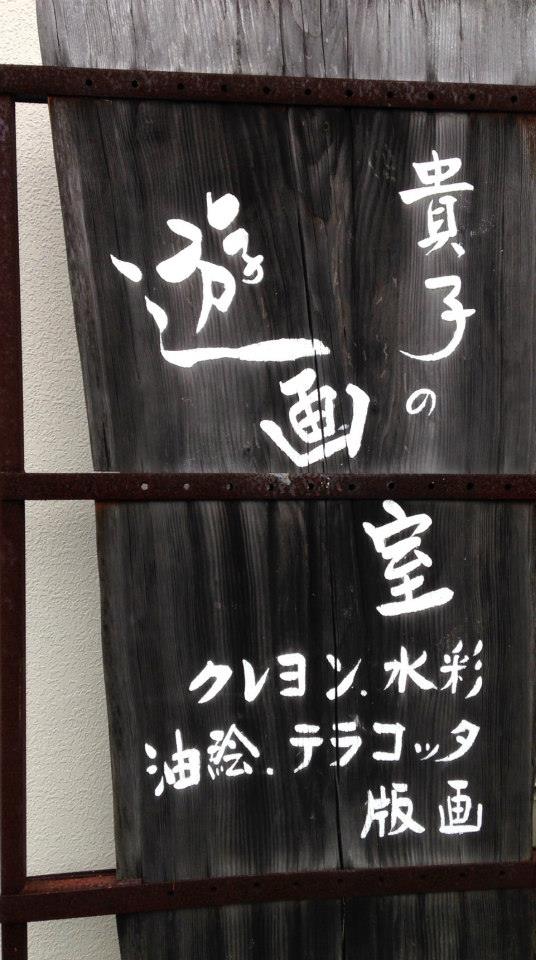 貴子の
遊画室
クレヨン.水彩
油絵.テラコッタ
版画